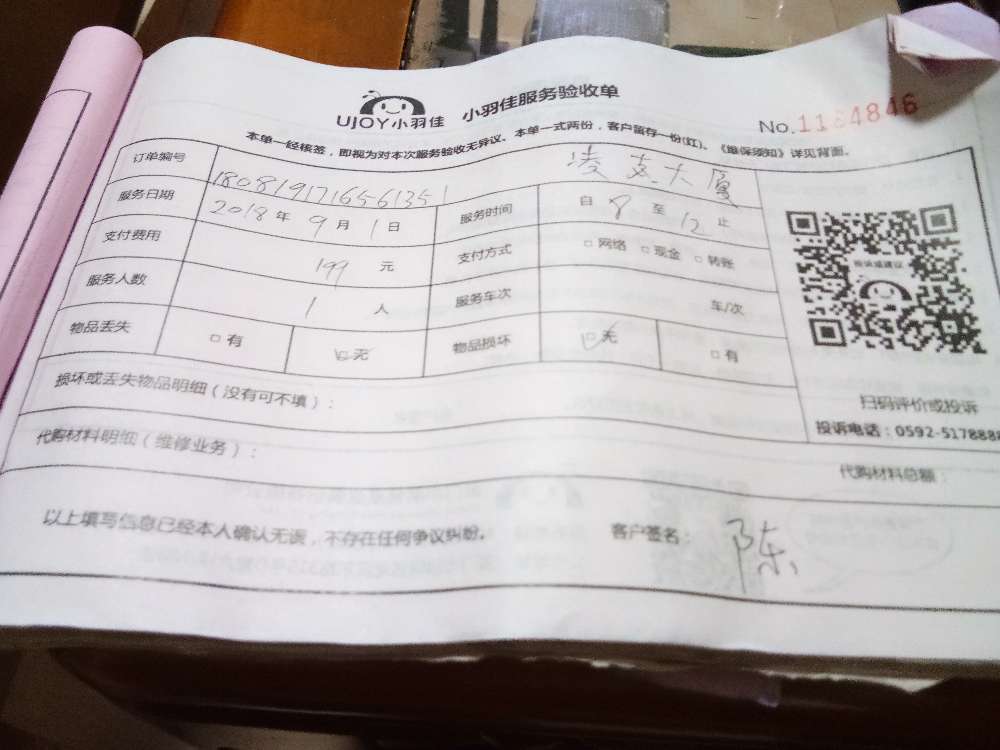 UJOY小羽佳 小羽佳服务验收单
No.1154846
本单一经核签，即视为对本次服务验收无异议。本单一式两份，客户留存一份(红)。《维保须知》详见背面。
订单编号 1808191716561351 大厦
服务日期 2018年9月1日 服务时间 自8至12止
支付费用 199元 支付方式 □网络 □现金 □转账
服务人数 1人 服务车次 车/次
物品丢失 □有 □无 物品损坏 □无 □有
投诉或建议
扫码评价或投诉
投诉电话：0592-5178888
损坏或丢失物品明细（没有可不填）：
代购材料明细（维修业务）：
代购材料总额：
以上填写信息已经本人确认无误，不存在任何争议纠纷。 客户签名： 陈